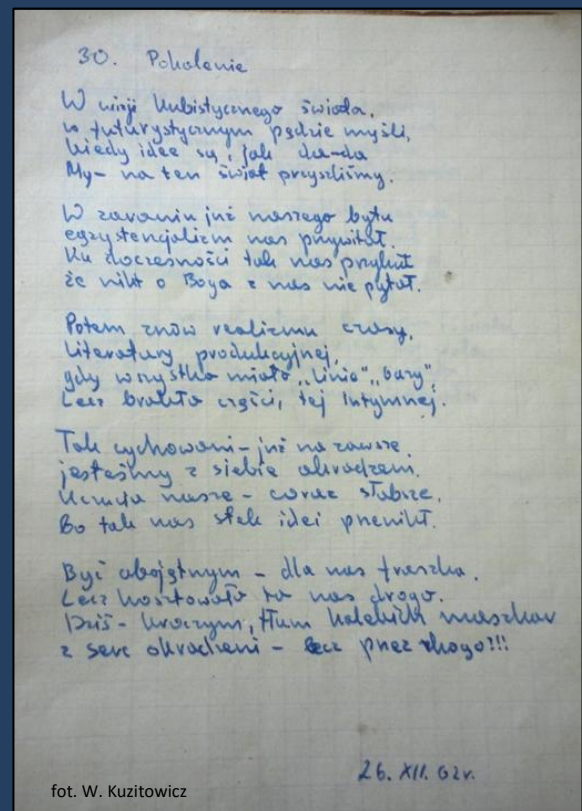 30. Pokolenie
W wizji kubistycznego świata,
w futurystycznym pędzie myśli,
kiedy idee są, jak da-da
My - na ten świat przyszliśmy.
W zaraniu już naszego bytu
egzystencjalizm nas przywitał.
Ku doczesności tak nas przykuł
że nikt o Boga z nas nie pytał.
Potem znów realizmu czasy,
Literatury produkcyjnej,
gdy wszystko miało "linię", "bazy",
Lecz brakło części, tej Intymnej.
Tak wychowani - już na zawsze
jesteśmy z siebie okradzeni.
Uczucia nasze - coraz słabsze,
Bo tak nas stek idei przenikł.
Być obojętnym - dla nas fraszka.
Lecz kosztowało to nas drogo.
Dziś - kroczym, tłum kalekich maszkar
z serc okradzeni - lecz przez kogo!!!
26. XII. 62r.
fot. W. Kuzitowicz